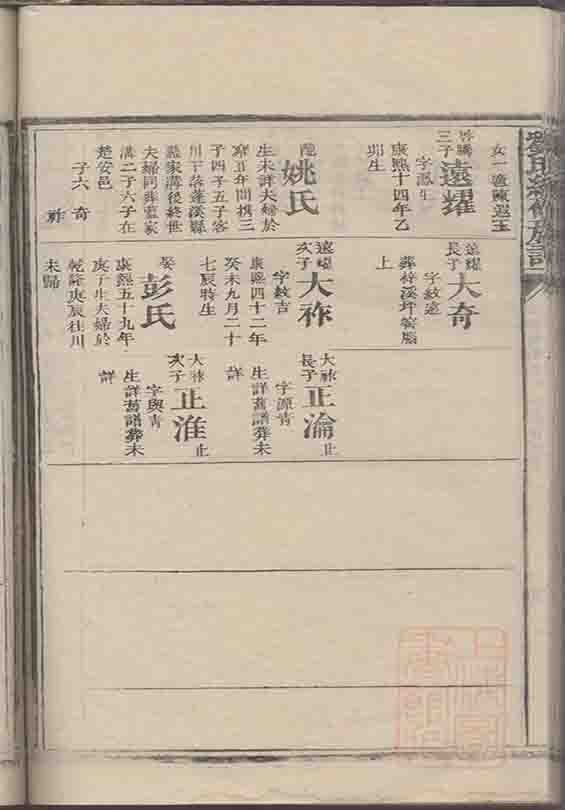 氏續修族譜
三子
遠耀
字鳳生
康熙十四年乙
卯生
姚氏
生未詳夫婦於
年間携三
子四子五子客
川下落蓬溪縣
藍家溝後終世
夫婦同葬藍家
溝二子六子在
楚安邑
子六
奇
祚
遠耀
長子
大奇
字紋遠
上
遠耀
次子
大祚
字紋吉
康熙四十二年
癸未九月二十
七辰時生
娶
彭氏
康熙五十九年
庚子生夫婦於
乾隆庚辰往川
未歸
大祚
長子
正淪
止
字源青
生詳舊譜葬未
詳
大祚
次子
正淮
止
字與青
生詳舊譜葬未
詳